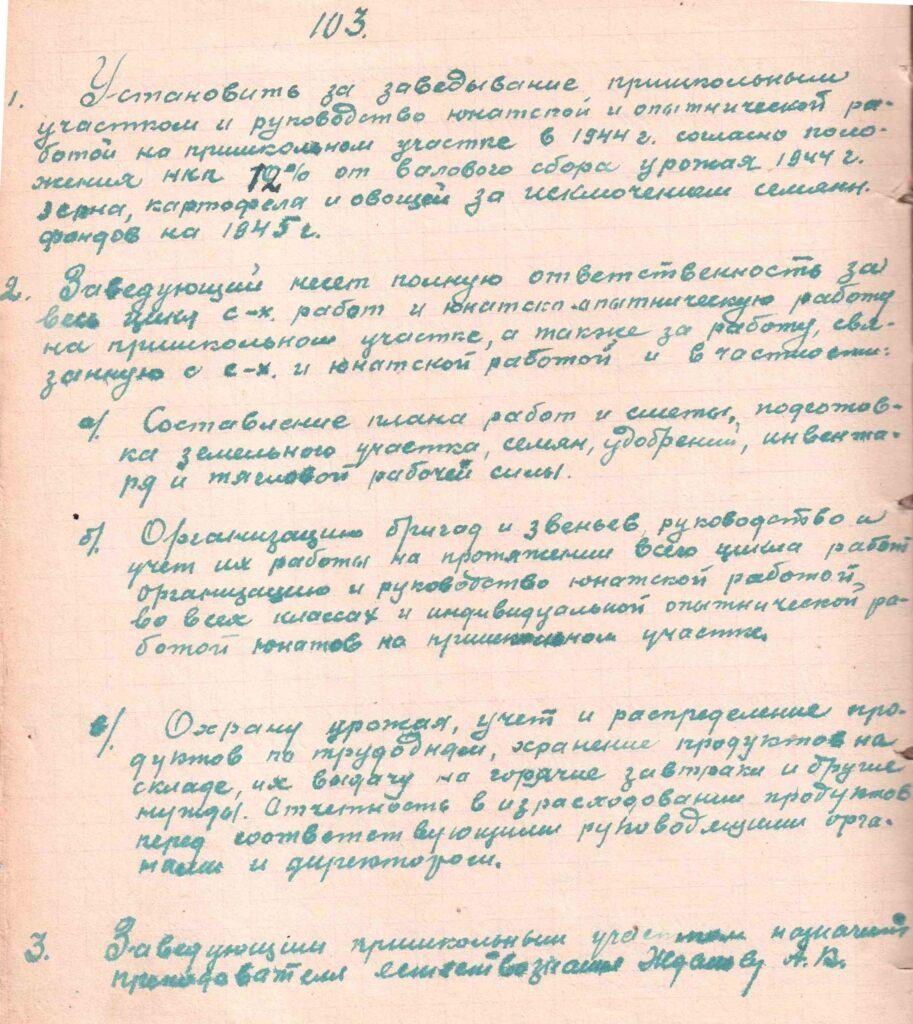 103.
1. Установить за заведывание пришкольным
участком и руководство юнатской и опытнической ра-
ботой на пришкольном участке в 1944 г. согласно поло-
жения НКП 12% от валового сбора урожая 1944 г.
зерна, картофеля и овощей за исключением семянн.
фондов на 1945 г.
2. Заведующий несет полную ответственность за
весь цикл с-х. работ и юнатско-опытническую работу
на пришкольном участке, а также за работу, свя-
занную с с-х. и юнатской работой и в частности:
а). Составление плана работ и сметы, подготов-
ка земельного участка, семян, удобрений, инвента-
ря и тягловой рабочей силы.
б). Организацию бригад и звеньев, руководство и
учет их работы на протяжении всего цикла работ
организацию и руководство юнатской работой,
во всех классах и индивидуальной опытнической ра-
ботой юнатов на пришкольном участке.
в). Охрану урожая, учет и распределение про-
дуктов по трудодням, хранение продуктов на
складе, их выдачу на горячие завтраки и другие
нужды. Отчетность в израсходовании продуктов
перед соответствующими руководящими орга-
нами и директором.
3. Заведующим пришкольным участком назначить
преподавателя естествознания Жданову А.В.